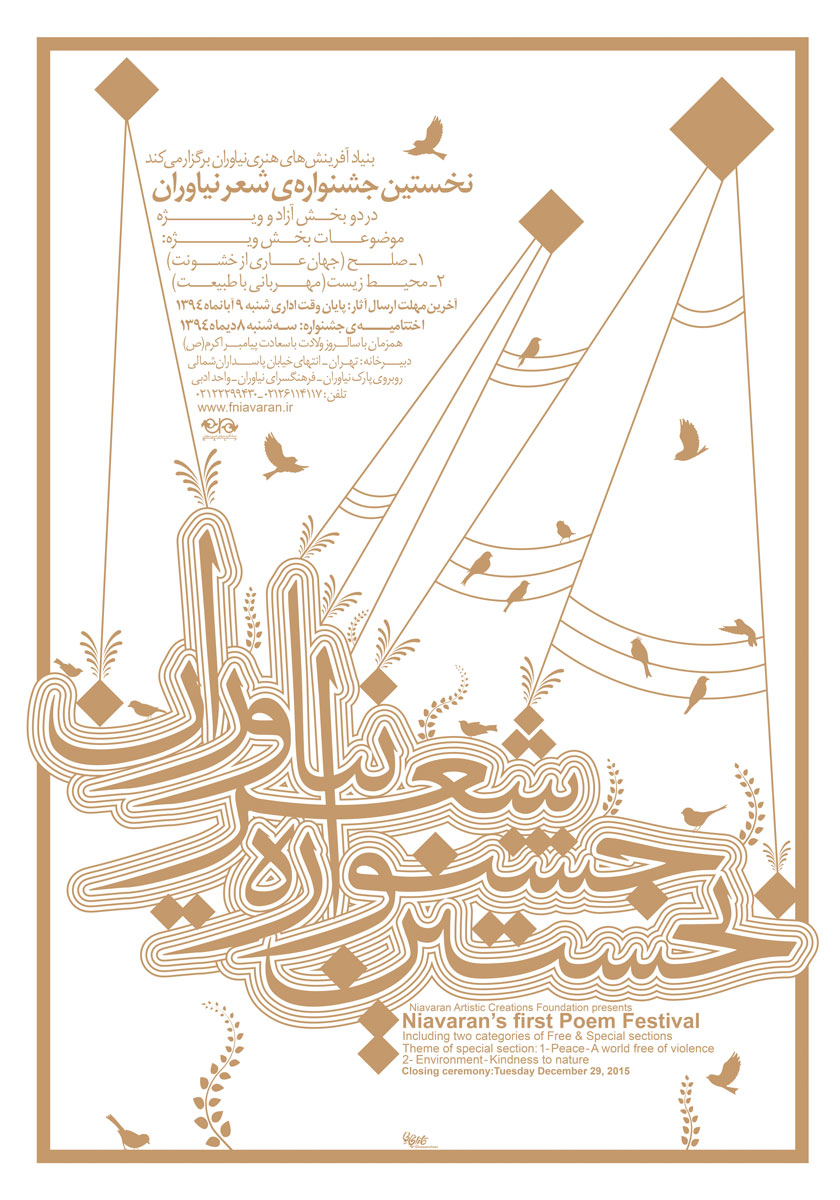 بنیاد آفرینش‌های هنری نیاوران برگزار می‌کند
نخستین جشنواره‌ی شعر نیاوران
در دو بخش آزاد و ویژه
موضوعات بخش ویژه:
۱ـ صلح (جهان عاری از خشونت)
۲ـ محیط زیست (مهربانی با طبیعت)
آخرین مهلت ارسال آثار: پایان وقت اداری شنبه ۹ آبانماه ۱۳۹۴
اختتامیه‌ی جشنواره: سه‌شنبه ۸ دیماه ۱۳۹۴
همزمان با سالروز ولادت با سعادت پیامبر اکرم(ص)
دبیرخانه: تهران ـ انتهای خیابان پاسداران شمالی
روبروی پارک نیاوران ـ فرهنگسرای نیاوران ـ واحد ادبی
تلفن: ۰۲۱۲۶۱۱۴۱۱۷ ـ ۰۲۱۲۲۲۹۹۴۳۰
www.fniavaran.ir
نیاوران
شعر
جشنواره‌ی
نخستین
Niavaran Artistic Creations Foundation presents
Niavaran's first Poem Festival
Including two categories of Free & Special sections
Theme of special section: 1- Peace - A world free of violence
2- Environment - Kindness to nature
Closing ceremony:Tuesday December 29, 2015